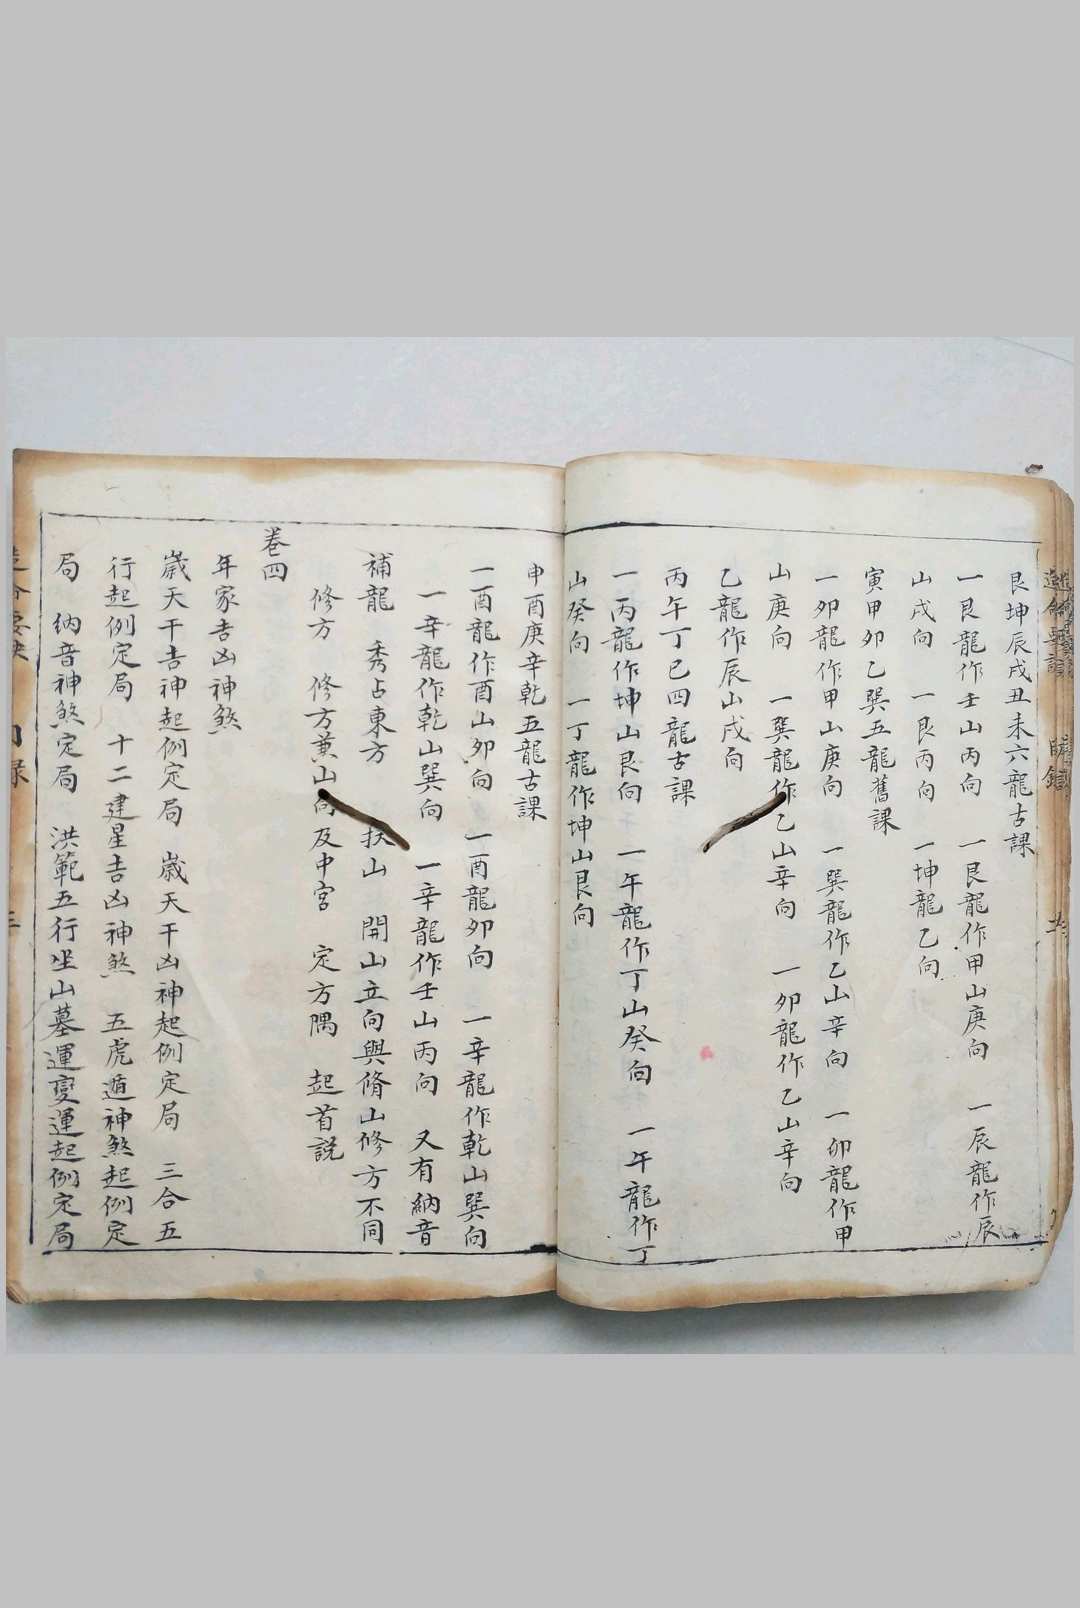 艮坤辰戌丑未六龍古課
一艮龍作壬山丙向 一艮龍作甲山庚向 一辰龍作辰
山戌向 一艮丙向 一坤龍乙向
寅甲卯乙巽五龍舊課
一卯龍作甲山庚向 一巽龍作乙山辛向 一卯龍作甲
山庚向 一巽龍作乙山辛向 一卯龍作乙山辛向
乙龍作辰山戌向
丙午丁巳四龍古課
一丙龍作坤山艮向 一午龍作丁山癸向 一午龍作丁
山癸向 一丁龍作坤山艮向
申酉庚辛乾五龍古課
一酉龍作酉山卯向 一酉龍卯向 一辛龍作乾山巽向
一辛龍作乾山巽向 一辛龍作壬山丙向 又有納音
補龍 秀占東方 扶山 開山立向與脩山修方不同
修方 修方兼山向及中宮 定方隅 起首説
卷四
年家吉凶神煞
歲天干吉神起例定局 歲天干凶神起例定局 三合五
行起例定局 十二建星吉凶神煞 五虎遁神煞起例定
局 納音神煞定局 洪範五行坐山墓運變運起例定局